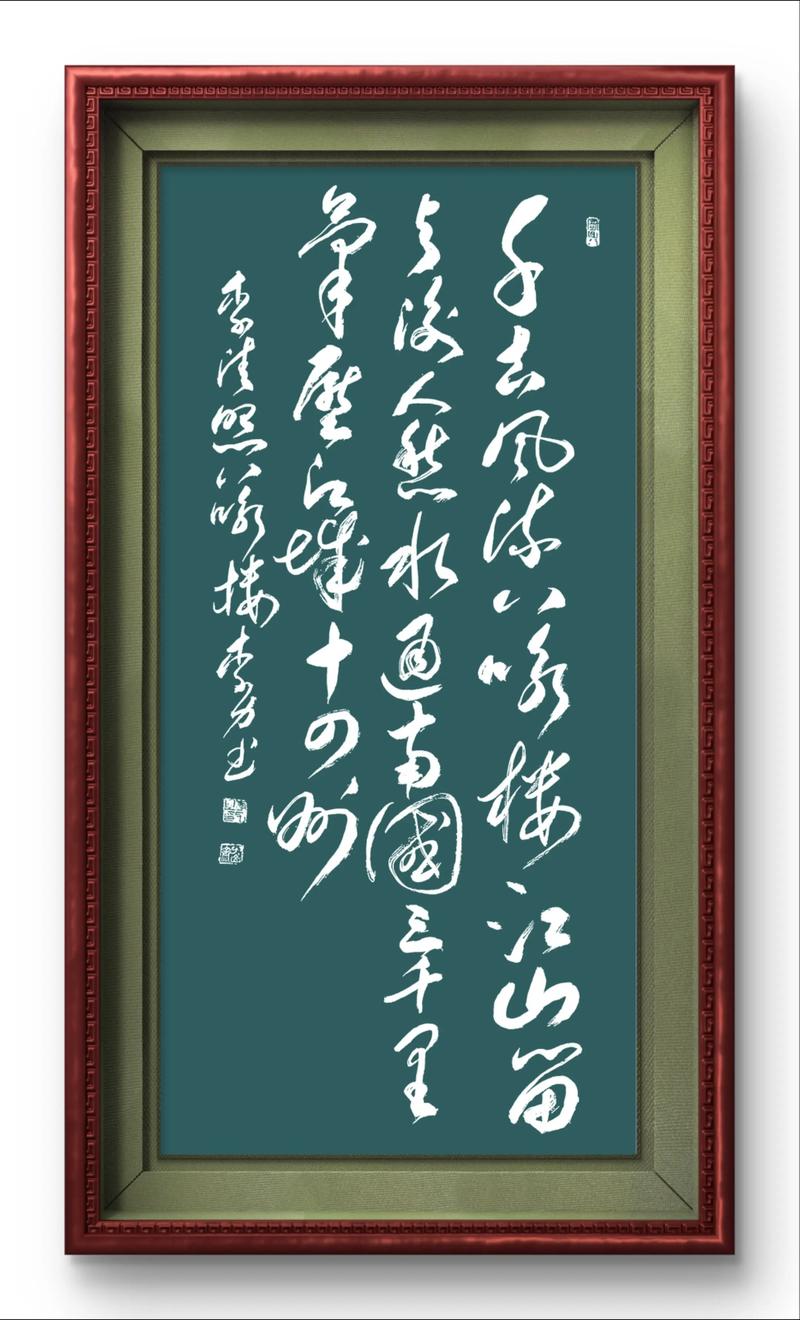 千古风流八咏楼江山留
与後人愁水通南國三千里
氣壓江城十四州
李清照八咏楼李方